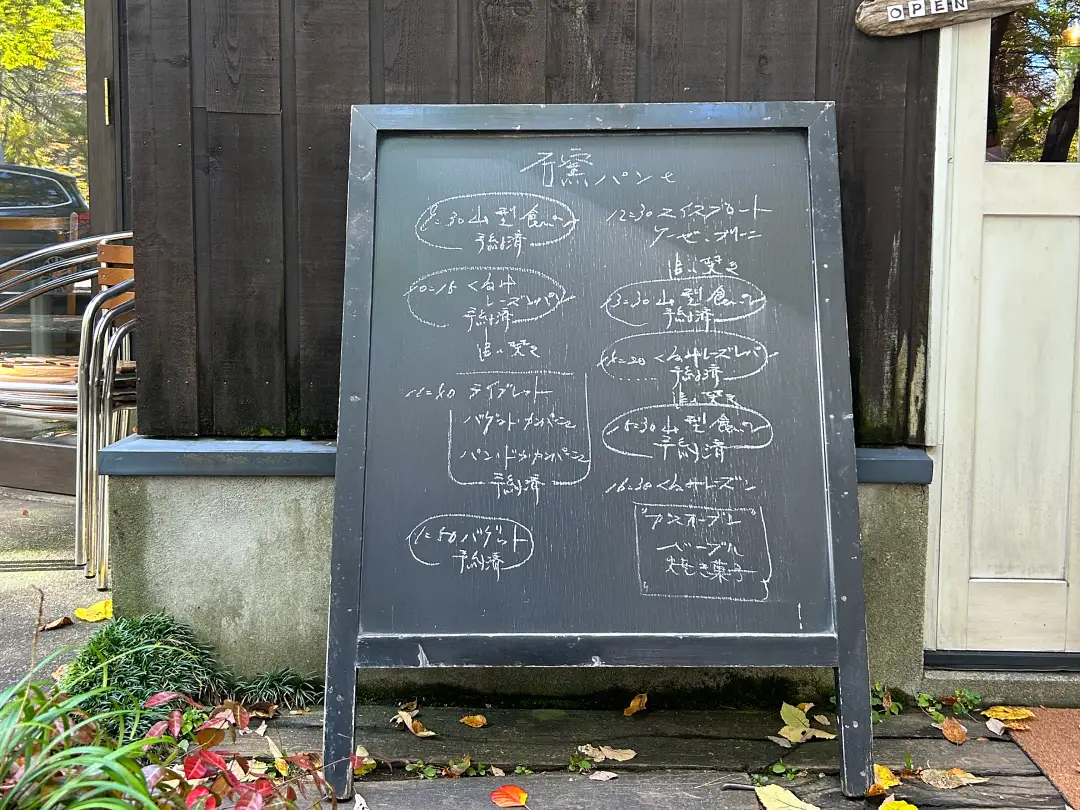 OPEN
石窯パン
8=30 山型食パン
予約済
10=15 くるみ
レーズンパン
予約済
追い焚き
11=40 ライブレット
バゲットカンパーニュ
パン・ド・カンパーニュ
予約済
11=50 バゲット
予約済
12=30 スイスブロート
チーズ、オリーブ
追い焚き
13=30 山型食パン
予約済
くるみレーズンパン
予約済
追い焚き
15=30 山型食パン
予約済
16=30 くるみレーズン
"ガスオーブン"
ベーグル
焼き菓子